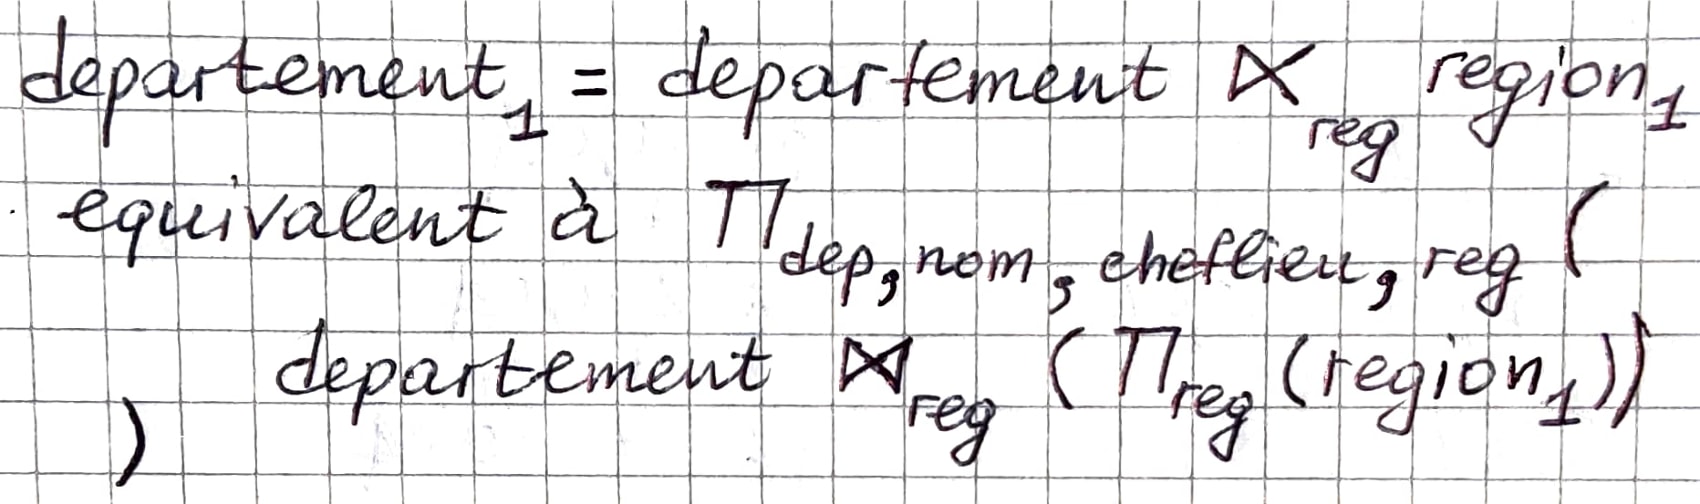 departement₁ = departement ⋉reg region₁
equivalent à Π dep, nom, cheflieu, reg (
departement ⋈reg (Πreg (region₁))
)